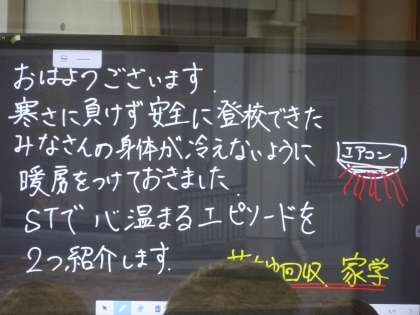 おはようございます.
寒さに負けず安全に登校できた
みなさんの身体が冷えないように
エアコン
暖房をつけておきました.
STで心温まるエピソードを
2つ紹介します.
回収 家学